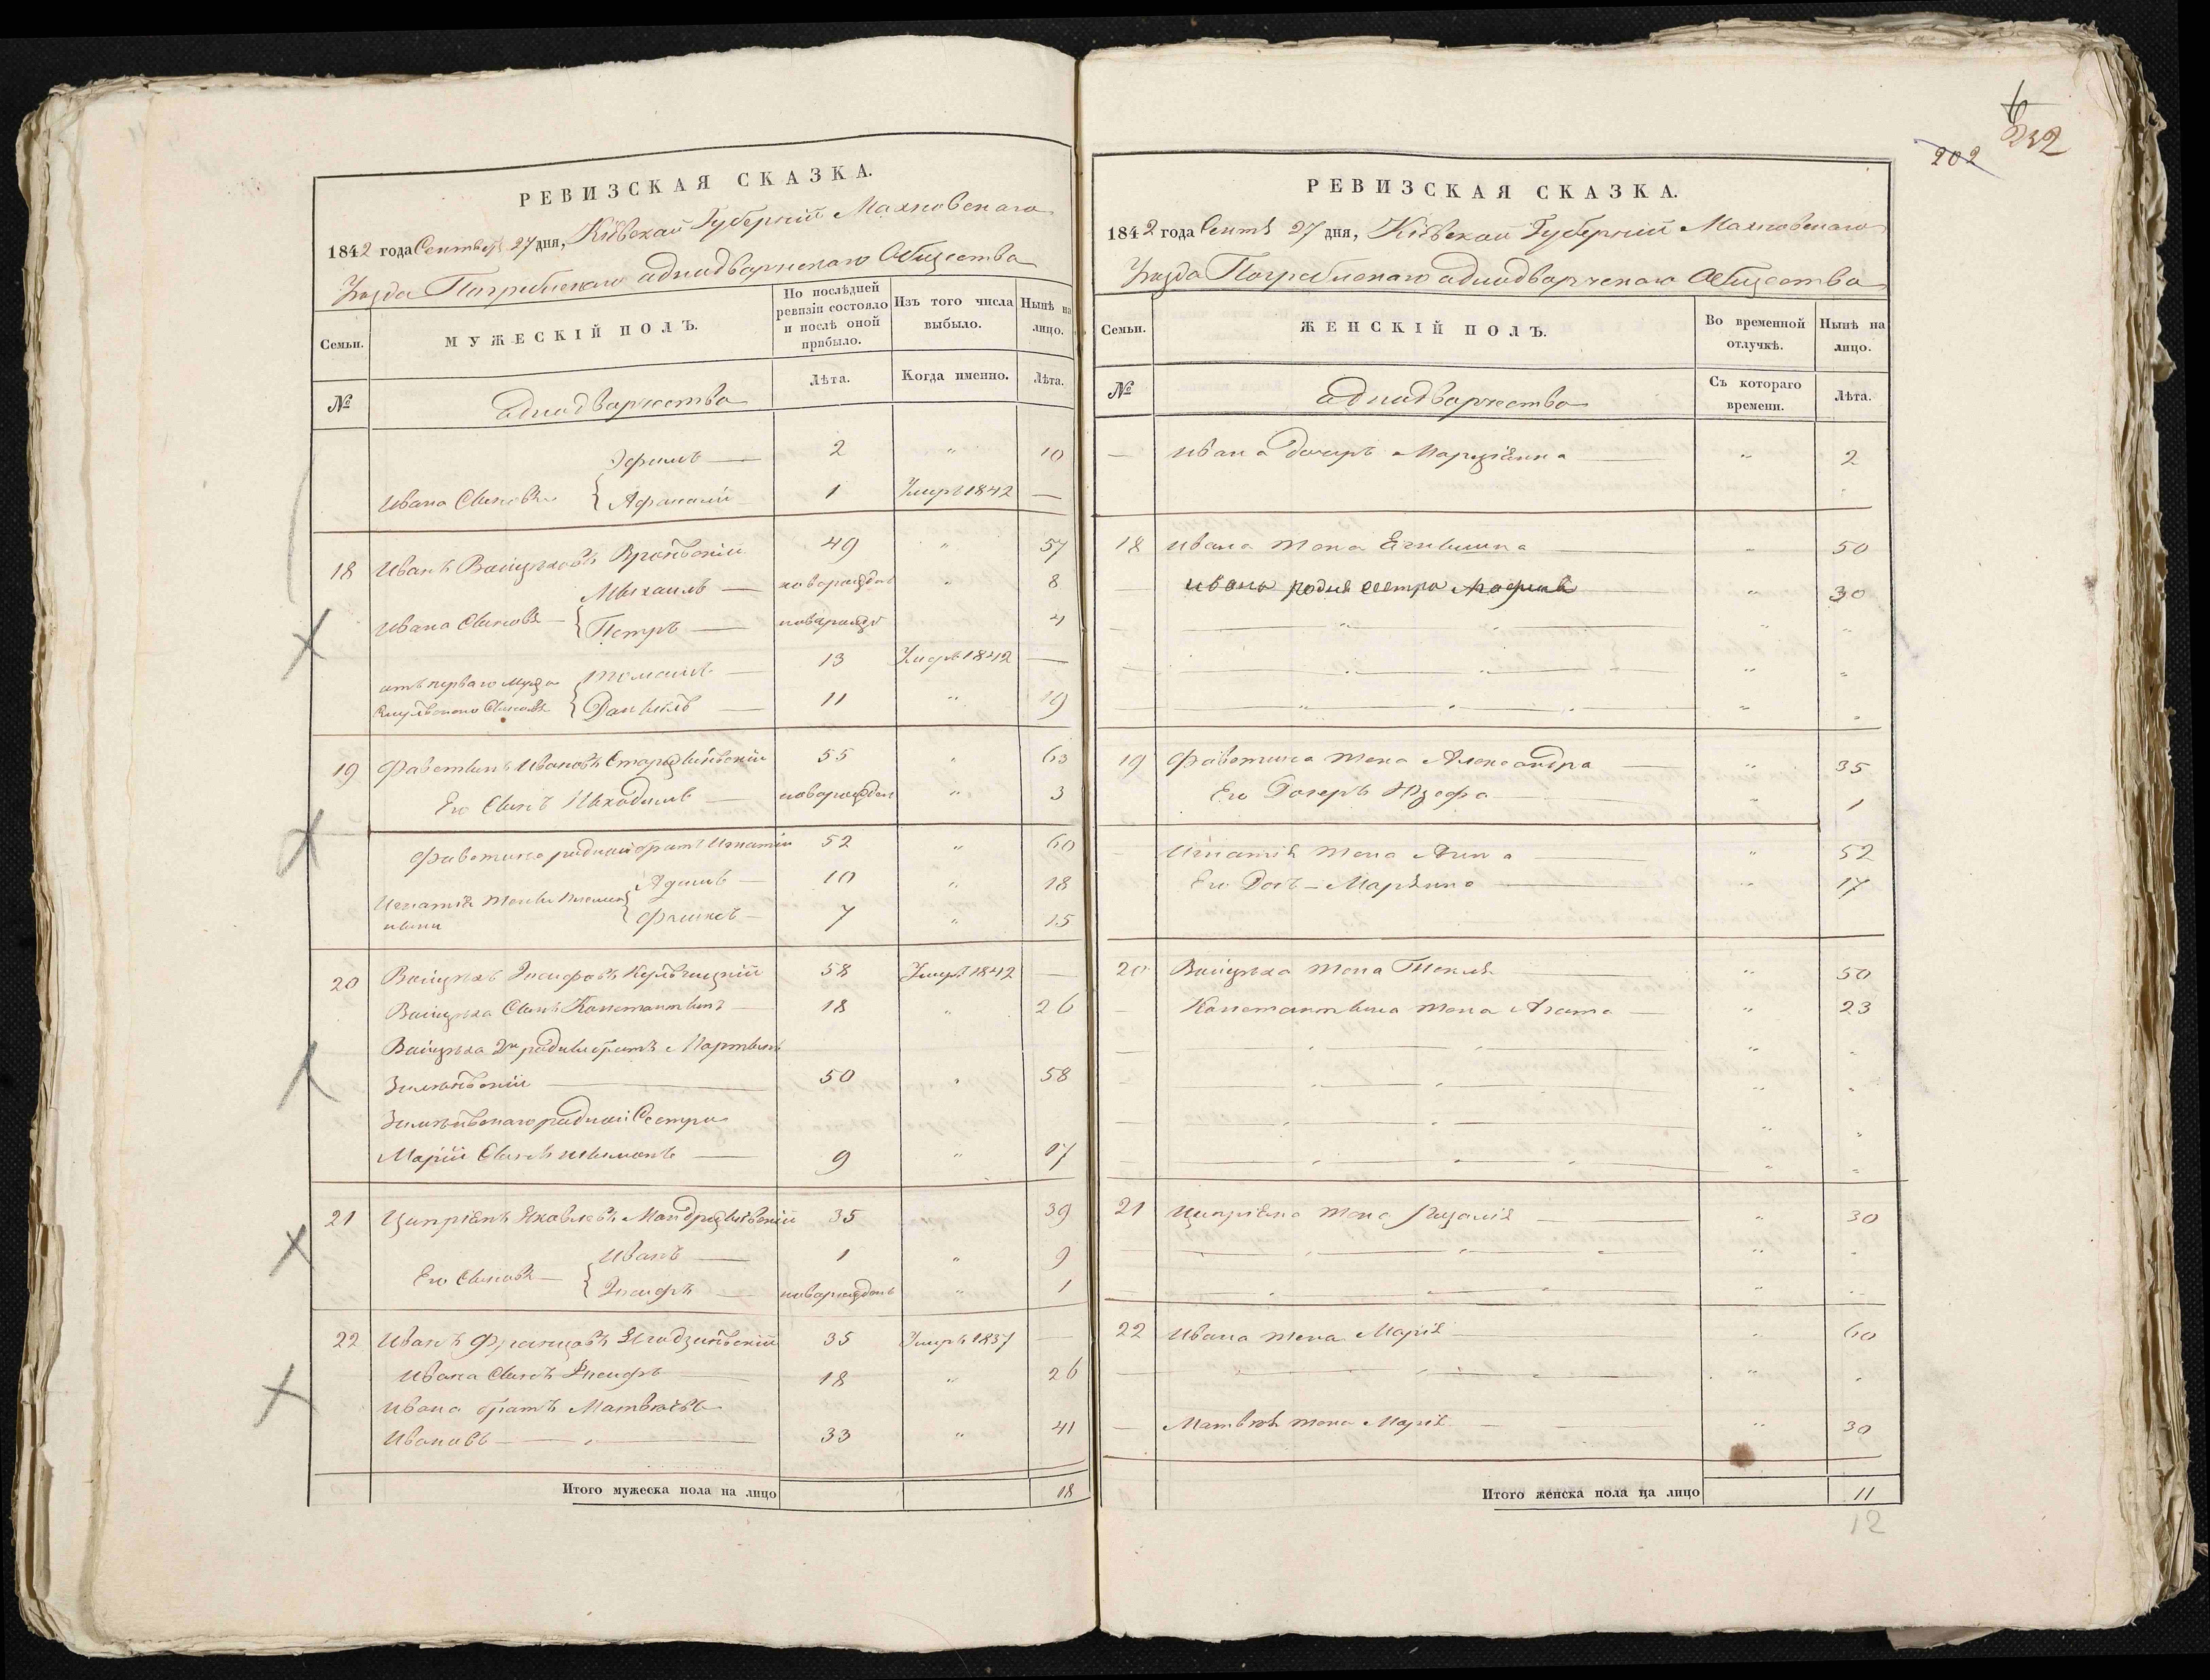 РЕВИЗСКАЯ СКАЗКА.
1842 года Сентября 27 дня, Кіевской Губерніи Махновскаго
Уезда Погребискаго однодворческаго Общества
Семьи.
МУЖЕСКІЙ ПОЛЪ.
По послѣдней ревизіи состояло и послѣ оной прибыло.
Изъ того числа выбыло.
Нынѣ на лицо.
№
однодворчества
Лѣта.
Когда именно.
Лѣта.
2 " 10
Ивана Сыновья Афанасий 1 Умеръ 1842 —
18 Иванъ Войцеховъ 49 " 57
Михаилъ — новорожден " 8
Ивана Сыновья — Петръ — новорожд 4
отъ перваго мужа Томашъ 13 Умеръ 1842 —
Сыновья Данылъ — 11 " 19
19 Фавстинъ Ивановъ 55 " 63
Его Сынъ Никодимъ — новорожден " 3
Фавстина родный братъ Игнатій 52 " 60
Игнатія жены племян Адамъ — 10 " 18
ныки 7 " 15
20 Войцехъ Іосифовъ Кульчицкій 58 Умеръ 1842 —
Войцеха Сынъ Константынъ — 18 " 26
Войцеха родный братъ Мартынъ
50 " 58
родной Сестры
Маріи Сынъ Шымонъ — 9 " 17
21 Ципріянъ Яковлевъ 35 39
Его Сыновья — Иванъ — 1 " 9
Іосифъ — новорожденъ " 1
22 Иванъ Францовъ 35 Умеръ 1837 —
Ивана Сынъ Іосифъ — 18 " 26
Ивана братъ Матвей
Ивановъ — " — 33 " 41
Итого мужеска пола на лицо 18
6
232
202
РЕВИЗСКАЯ СКАЗКА.
1842 года Сентя 27 дня, Кіевской Губерніи Махновскаго
Уезда Погребискаго однодворческаго Общества
Семьи.
ЖЕНСКІЙ ПОЛЪ.
Во временной отлучкѣ.
Нынѣ на лицо.
№
однодворчества
Съ котораго времени.
Лѣта.
— Ивана дочеръ Марціянна — " 2
18 Ивана жена — " 50
— Ивана родна сестра — " 30
19 Фавстина жена Александра — " 35
Его Дочеръ Юзефа — " 1
Игнатія жена Анна — " 52
Его Дочъ — Маріянна — " 17
20 Войцеха жена Текля — " 50
— Константына жена Агата — " 23
21 Ципріяна жена — " 30
22 Ивана жена Марія — " 60
— Матвея жена Марія — " 30
Итого женска пола на лицо 11
12